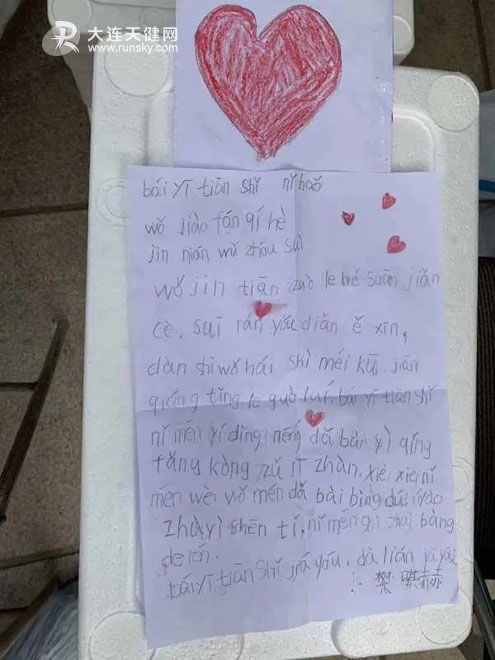 大连天健网
www.runsky.com
bái yī tiān shǐ nǐ hǎo
wǒ jiào fán qí hè
jīn nián wǔ zhōu suì
wǒ jīn tiān zuò le hé suān jiǎn
cè, suī rán yǒu diǎn ě xīn,
dàn shì wǒ hái shì méi kū jiān
qiáng tǐng le guò lái. bái yī tiān shǐ
nǐ men yí dìng néng dǎ bài yì qíng
fáng kòng zǔ jī zhàn, xiè xie nǐ
men wèi wǒ men dǎ bài bìng dú, yào
zhù yì shēn tǐ, nǐ men shì zuì bàng
de rén.
bái yī tiān shǐ jiā yóu. dà lián jiā yóu
樊 祺赫